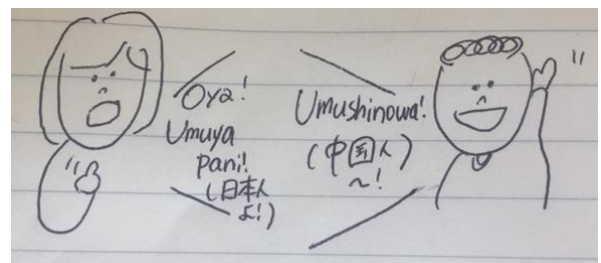 Oya!
Umuya
pani!
(日本人
よ!)
Umushinowa!
(中国人)
~!